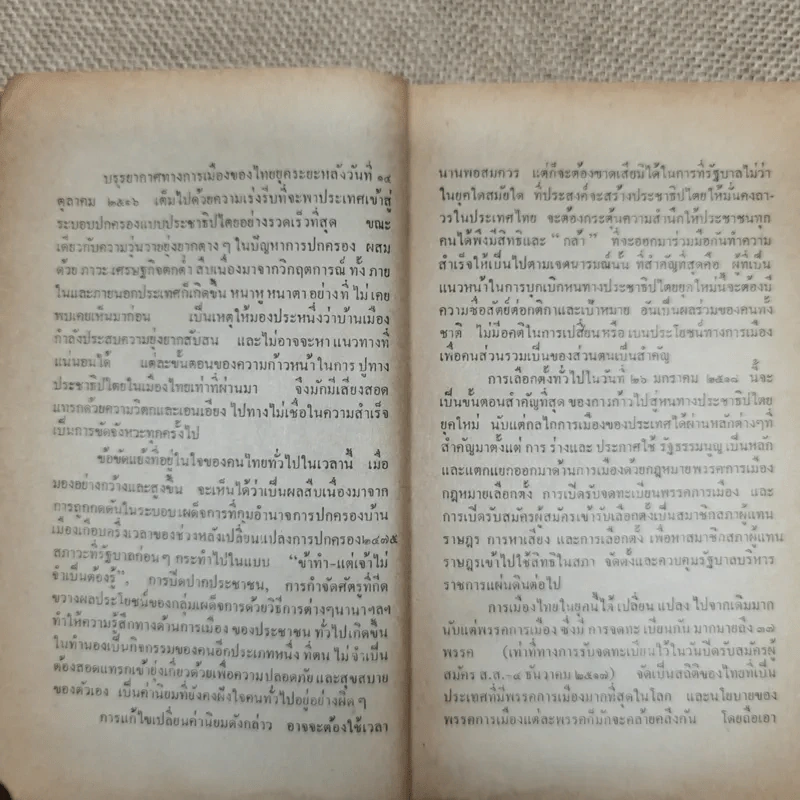 บรรยากาศทางการเมืองของไทยยุคระยะหลังวันที่ ๑๔
ตุลาคม ๒๕๑๖ เต็มไปด้วยความเร่งรีบที่จะพาประเทศเข้าสู่
ระบอบปกครองแบบประชาธิปไตยอย่างรวดเร็วที่สุด ขณะ
เดียวกับความวุ่นวายยุ่งยากต่าง ๆ ในปัญหาการปกครอง ผสม
ด้วย ภาวะ เศรษฐกิจตกต่ำ สืบเนื่องมาจากวิกฤตการณ์ ทั้ง ภาย
ในและภายนอกประเทศก็เกิดขึ้น หนาหู หนาตา อย่างที่ ไม่ เคย
พบเคยเห็นมาก่อน เป็นเหตุให้มองประหนึ่งว่าบ้านเมือง
กำลังประสบความยุ่งยากสับสน และไม่อาจจะหา แนวทางที่
แน่นอนได้ แต่ละขั้นตอนของความก้าวหน้าในการ ปูทาง
ประชาธิปไตยในเมืองไทยเท่าที่ผ่านมา จึงมักมีเสียงสอด
แทรกด้วยความวิตกและเอนเอียง ไปทางไม่เชื่อในความสำเร็จ
เป็นการขัดจังหวะทุกครั้งไป
ข้อขัดแย้งที่อยู่ในใจของคนไทยทั่วไปในเวลานี้ เมื่อ
มองอย่างกว้างและสูงขึ้น จะเห็นได้ว่าเป็นผลสืบเนื่องมาจาก
การถูกกดดันในระบอบเผด็จการที่กุมอำนาจการปกครองบ้าน
เมืองเกือบครึ่งเวลาของช่วงหลังเปลี่ยนแปลงการปกครอง๒๔๗๕
สภาวะที่รัฐบาลก่อน ๆ กระทำไปในแบบ “ข้าทำ-แต่เจ้าไม่
จำเป็นต้องรู้”, การปิดปากประชาชน, การกำจัดศัตรูที่กีด
ขวางผลประโยชน์ของกลุ่มเผด็จการด้วยวิธีการต่างๆนานาฯลฯ
ทำให้ความรู้สึกทางด้านการเมือง ของประชาชน ทั่วไปเกิดขึ้น
ในทำนองเป็นกิจกรรมของคนอีกประเภทหนึ่ง ที่ตน ไม่ จำเป็น
ต้องสอดแทรกเข้ายุ่งเกี่ยวด้วยเพื่อความปลอดภัย และสุขสบาย
ของตัวเอง เป็นค่านิยมที่ยังคงฝังใจคนทั่วไปอยู่อย่างผิด ๆ
การแก้ไขเปลี่ยนค่านิยมดังกล่าว อาจจะต้องใช้เวลา
นานพอสมควร แต่ก็จะต้องขาดเสียมิได้ในการที่รัฐบาลไม่ว่า
ในยุคใดสมัยใด ที่ประสงค์จะสร้างประชาธิปไตยให้มั่นคงถา-
วรในประเทศไทย จะต้องกระตุ้นความสำนึกให้ประชาชนทุก
คนได้พึงมีสิทธิและ “ กล้า ” ที่จะออกมาร่วมมือกันทำความ
สำเร็จให้เป็นไปตามเจตนารมณ์นั้น ที่สำคัญที่สุดคือ ผู้ที่เป็น
แนวหน้าในการบุกเบิกหนทางประชาธิปไตยยุคใหม่นี้จะต้องมี
ความซื่อสัตย์ต่อกติกาและเป้าหมาย อันเป็นผลร่วมของคนทั้ง
ชาติ ไม่มีอคติในการเปลี่ยน หรือ เบนประโยชน์ทางการเมือง
เพื่อคนส่วนรวมเป็นของส่วนตนเป็นสำคัญ
การเลือกตั้งทั่วไปในวันที่ ๒๖ มกราคม ๒๕๑๘ นี้จะ
เป็นขั้นตอนสำคัญที่สุด ของการก้าวไปสู่หนทางประชาธิปไตย
ยุคใหม่ นับแต่กลไกการเมืองของประเทศได้ผ่านหลักต่างๆที่
สำคัญมาตั้งแต่ การ ร่างและ ประกาศใช้ รัฐธรรมนูญ เป็นหลัก
และแตกแยกออกมาด้านการเมืองด้วยกฎหมายพรรคการเมือง
กฎหมายเลือกตั้ง การเปิดรับจดทะเบียนพรรคการเมือง และ
การเปิดรับสมัครผู้สมัครเข้ารับเลือกตั้งเป็นสมาชิกสภาผู้แทน
ราษฎร การหาเสียง และการเลือกตั้ง เพื่อหาสมาชิกสภาผู้แทน
ราษฎรเข้าไปใช้สิทธิในสภา จัดตั้งและควบคุมรัฐบาลบริหาร
ราชการแผ่นดินต่อไป
การเมืองไทยในยุคนี้ได้ เปลี่ยน แปลง ไปจากเดิมมาก
นับแต่พรรคการเมือง ซึ่งมี การจดทะเบียนกัน มากมายถึง ๓๗
พรรค (เท่าที่ทางการรับจดทะเบียนไว้ในวันปิดรับสมัครผู้
สมัคร ส.ส.-๔ ธันวาคม ๒๕๑๗) จัดเป็นสถิติของไทยที่เป็น
ประเทศที่มีพรรคการเมืองมากที่สุดในโลก และนโยบายของ
พรรคการเมืองแต่ละพรรคก็มักจะคล้ายคลึงกัน โดยถือเอา